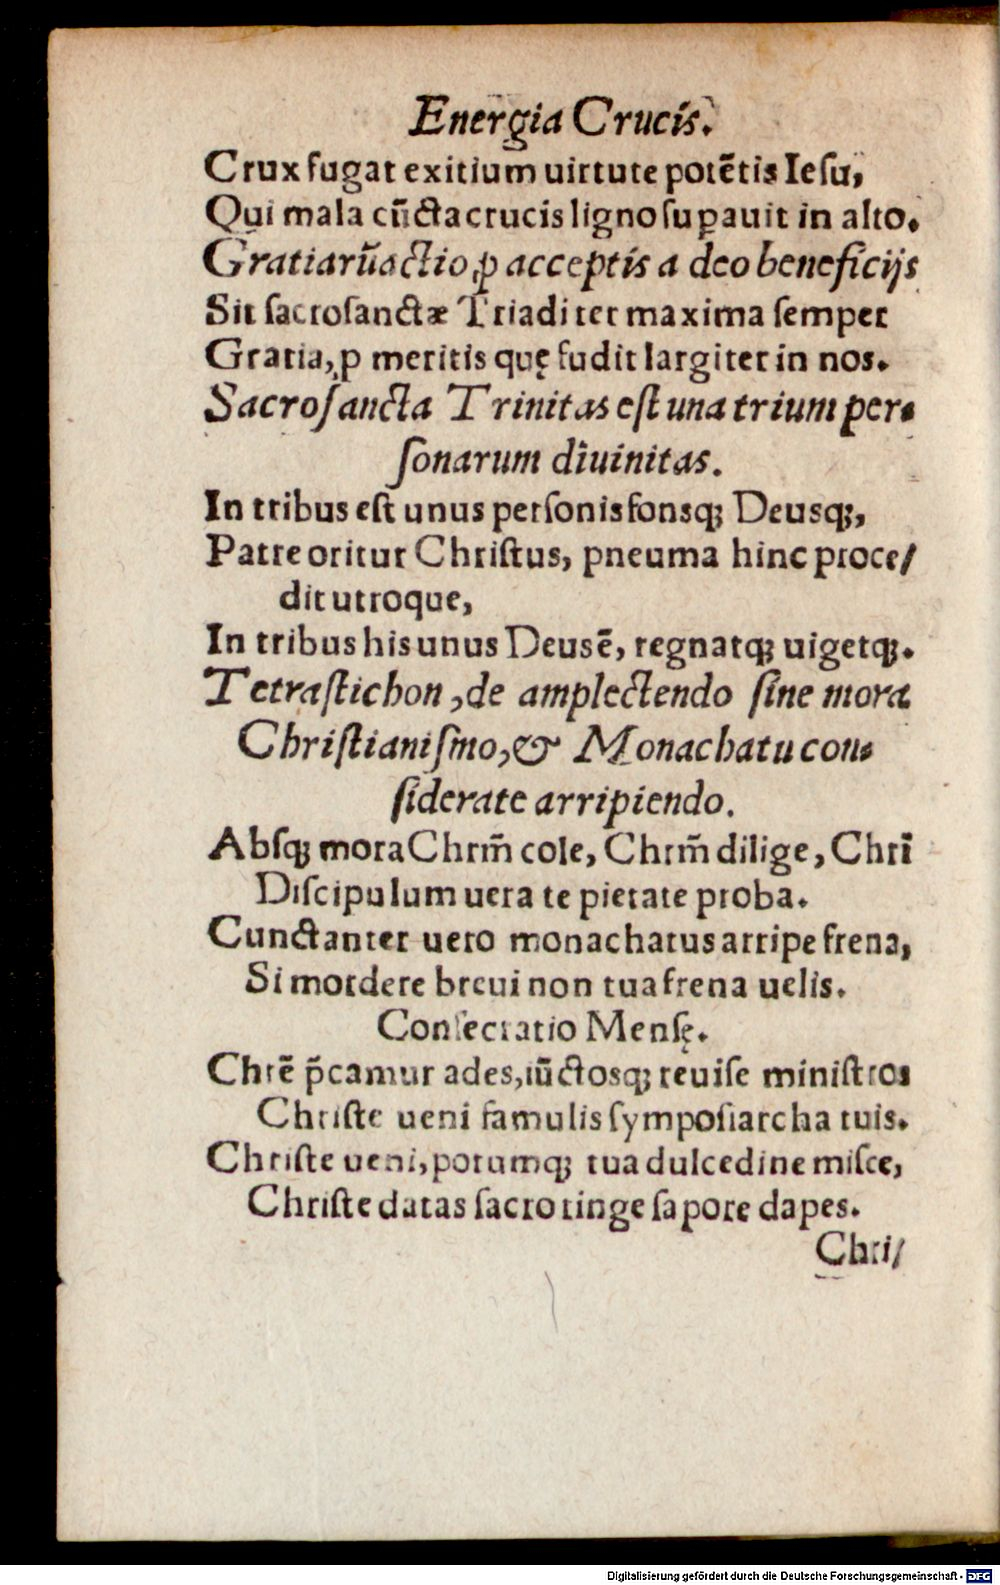 Energia Crucis.
Crux fugat exitium uirtute potētis Iesu,
Qui mala cūcta crucis ligno suꝑauit in alto.
Gratiarū actio ꝓ acceptis a deo beneficijs
Sit sacrosanctæ Triadi ter maxima semper
Gratia, ꝓ meritis quę fudit largiter in nos.
Sacrosancta Trinitas est una trium per-
sonarum diuinitas.
In tribus est unus personis fonsq; Deusq;,
Patre oritur Christus, pneuma hinc proce/
dit utroque,
In tribus his unus Deus ē, regnatq; uigetq;.
Tetrastichon, de amplectendo sine mora
Christianismo, & Monachatu con-
siderate arripiendo.
Absq; mora Chrm̄ cole, Chrm̄ dilige, Chrī
Discipulum uera te pietate proba.
Cunctanter uero monachatus arripe frena,
Si mordere breui non tua frena uelis.
Consecratio Mensę.
Chrē p̄camur ades, iūctosq; reuise ministros
Christe ueni famulis symposiarcha tuis.
Christe ueni, potumq; tua dulcedine misce,
Christe datas sacro tinge sapore dapes.
Chri/
Digitalisierung gefördert durch die Deutsche Forschungsgemeinschaft - DFG